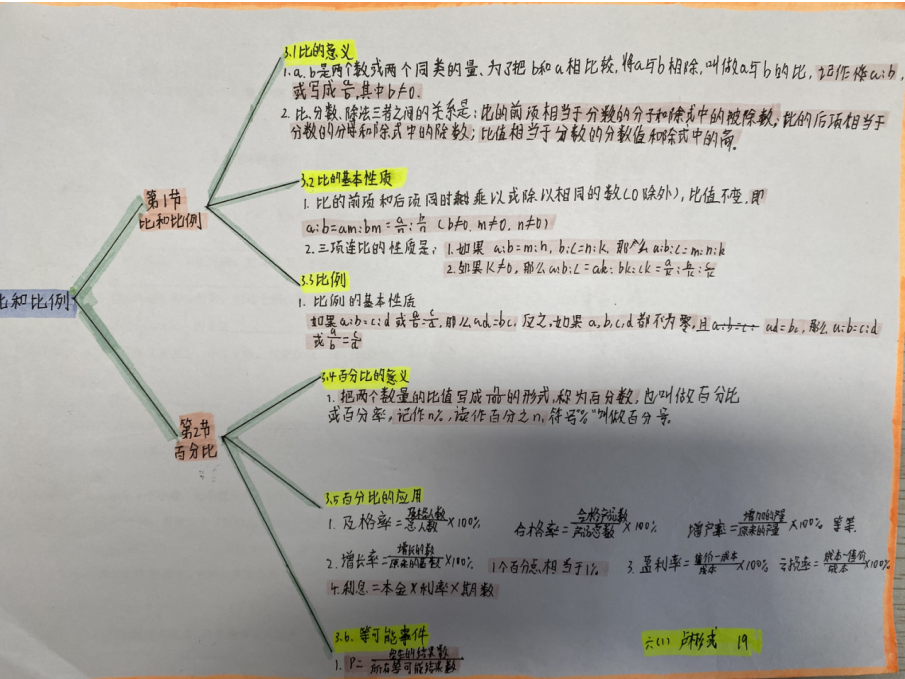 比和比例
第1节
比和比例
3.1比的意义
1.a.b是两个数或两个同类的量、为了把b和a相比较,将a与b相除,叫做a与b的比,记作a:b,
或写成a/b,其中b≠0.
2.比、分数、除法三者之间的关系是:比的前项相当于分数的分子和除式中的被除数;比的后项相当于
分数的分母和除式中的除数;比值相当于分数的分数值和除式中的商。
3.2比的基本性质
1.比的前项和后项同时乘以或除以相同的数(0除外),比值不变,即
a:b=am:bm=a/n:b/n (b≠0,m≠0,n≠0)
2.三项连比的性质是:1.如果a:b=m:n,b:c=n:k,那么a:b:c=m:n:k
2.如果k≠0,那么a:b:c=ak:bk:ck=a/k:b/k:c/k
3.3比例
1.比例的基本性质
如果a:b=c:d或a/b=c/d,那么ad=bc,反之,如果a,b,c,d都不为零,且a:b=c: ad=bc,那么a:b=c:d
或a/b=c/d
第2节
百分比
3.4百分比的意义
1.把两个数量的比值写成n/100的形式,称为百分数,也叫做百分比
或百分率,记作n%,读作百分之n,符号"%"叫做百分号.
3.5百分比的应用
1.及格率=及格人数/总人数×100% 合格率=合格产品数/产品总数×100% 增产率=增加的产量/原来的产量×100% 等等
2.增长率=增长的数/原来的基数×100% 1个百分点相当于1% 3.盈利率=售价-成本/成本×100% 亏损率=成本-售价/成本×100%
4.利息=本金×利率×期数
3.6.等可能事件
1.P=发生的结果数/所有等可能结果数
六(1) 卢 19